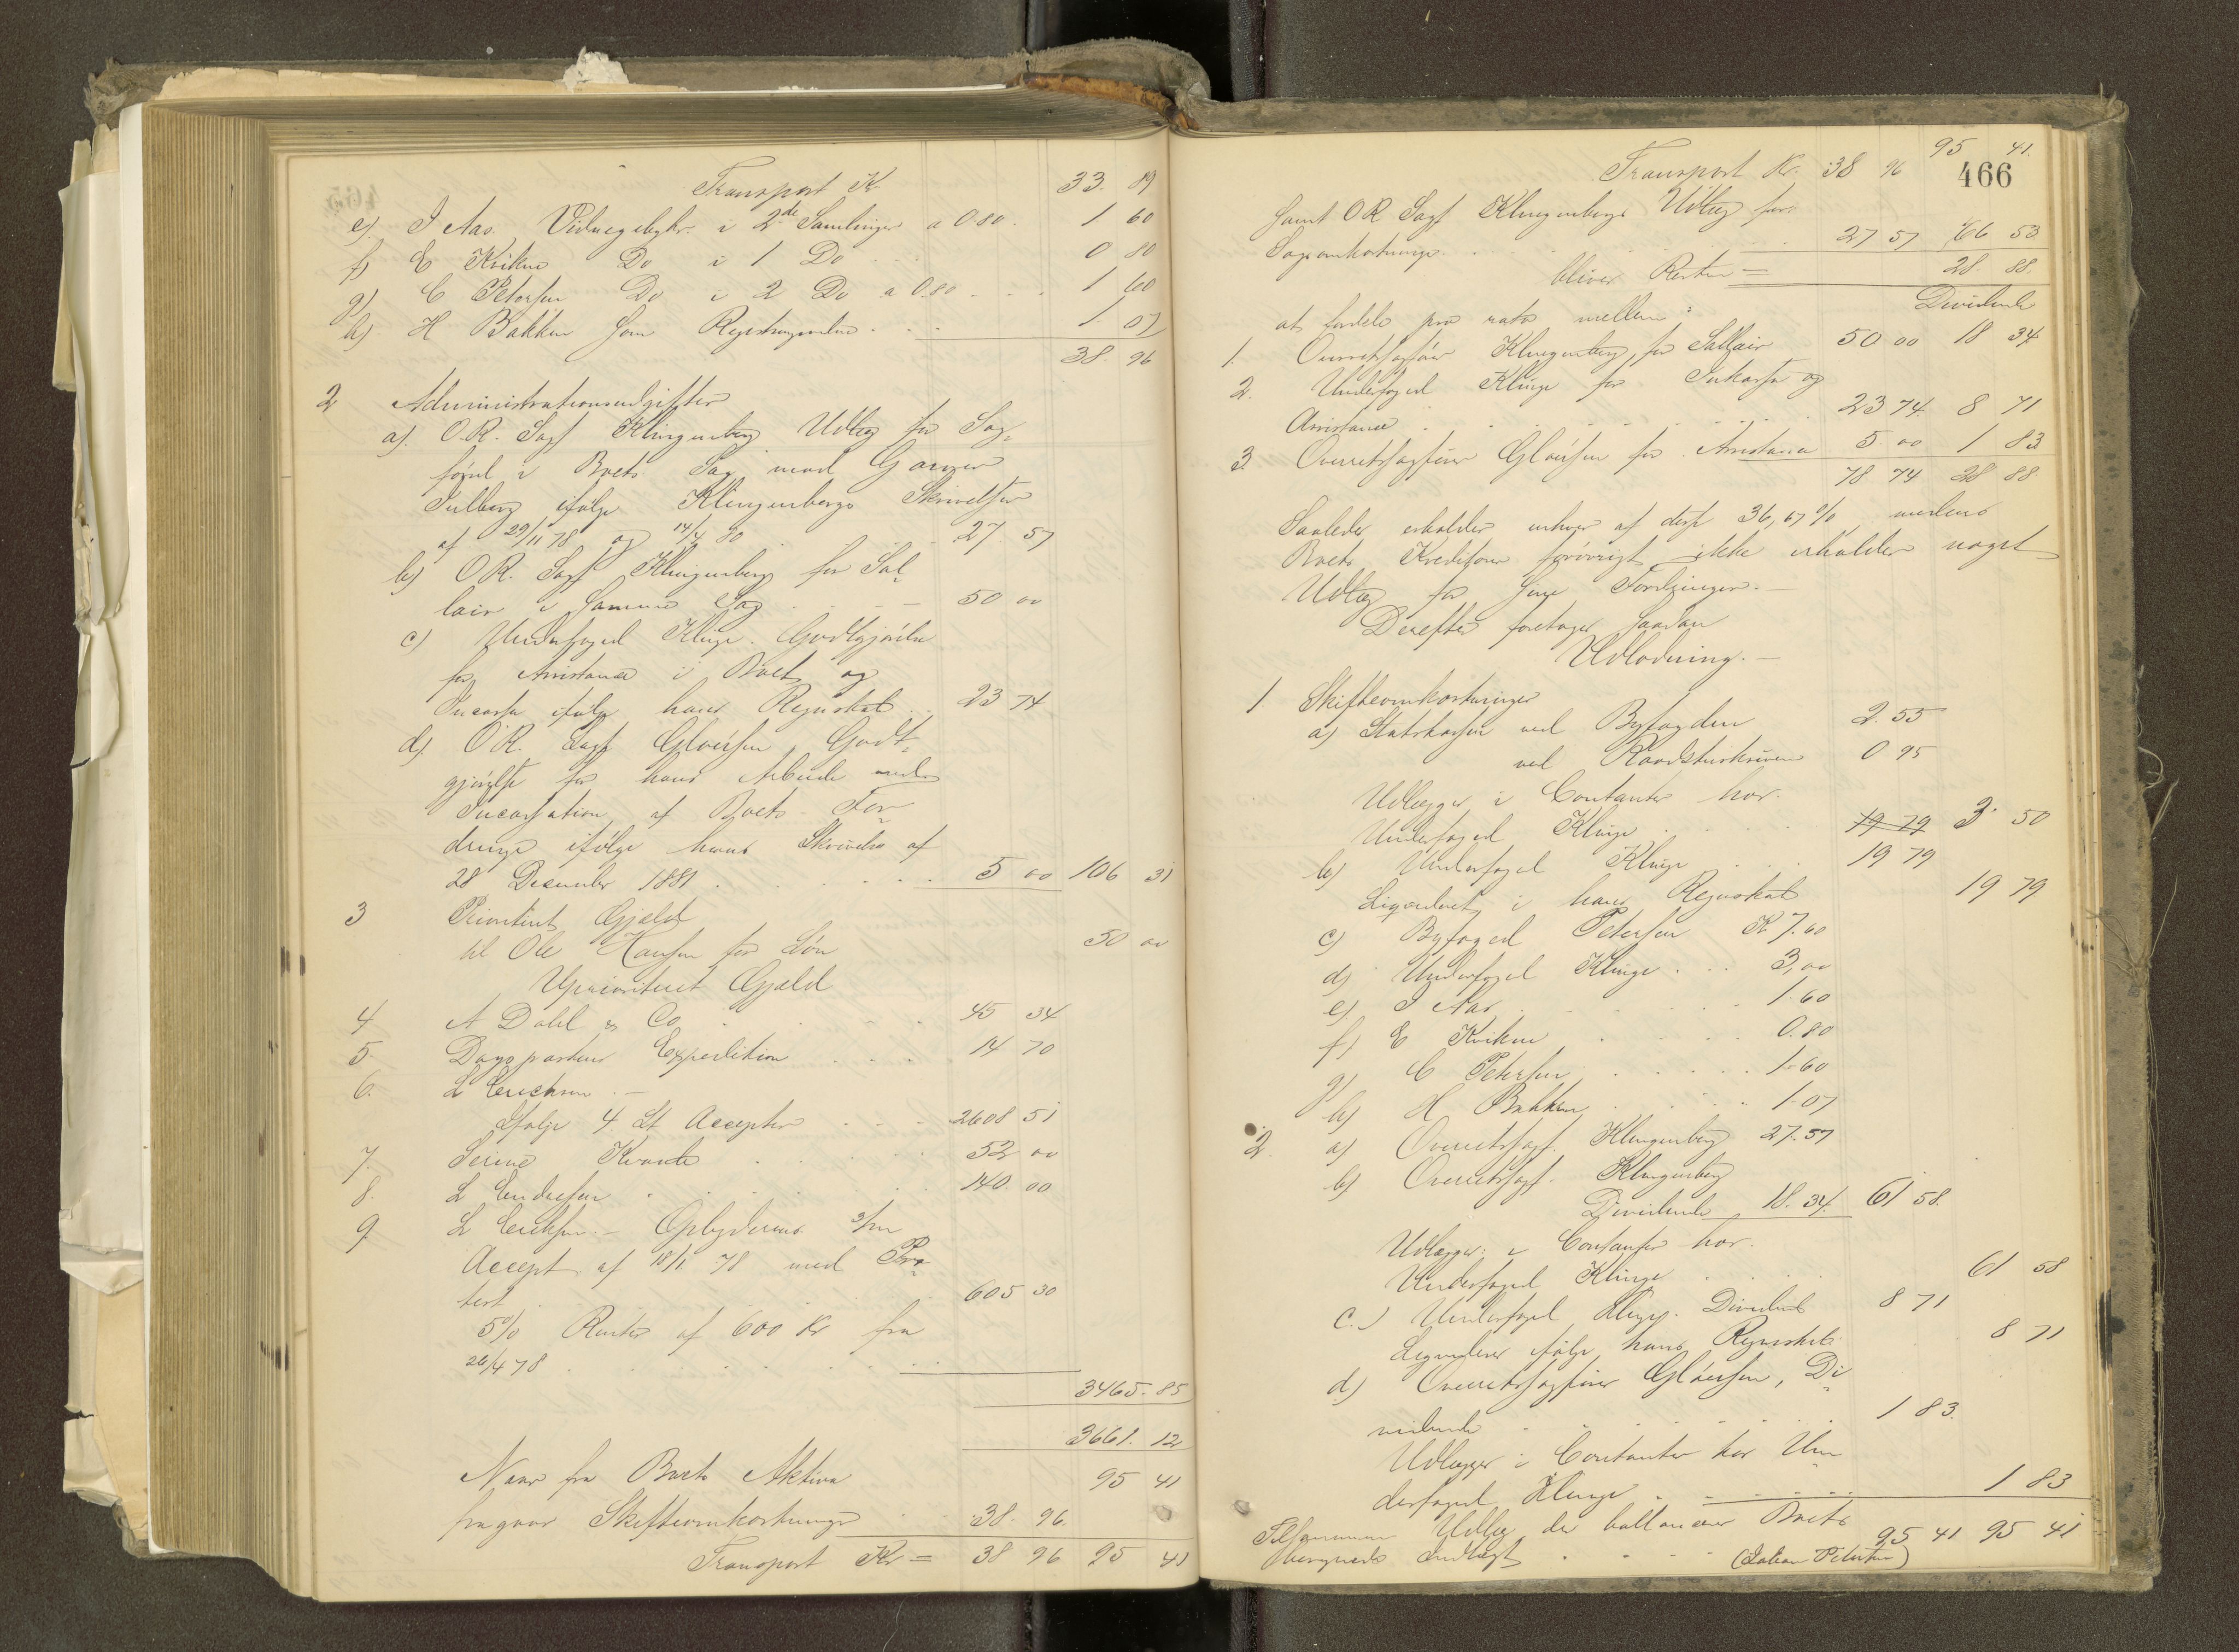 Transport Kr. 33. 89
e) I Aas. Vidnegebyhr. i 2de Samlinger a 0.80. 1 60
f) E Kvikne Do i 1 Do 0 80
g) C Petersen Do i 2 Do a 0.80 1 60
h) H Bakken som 1. 07
38. 96
2 Administrationsudgifter
a). O.R. Sagf Klingenberg Udlæg for Sag-
førsel i Boets Sag mod
ifølge Klingenbergs Skrivelser
af 29/11 78 og 14/4 80 27. 57
b) O.R. Sagf Klingenberg for Sal-
lair i samme Sag 50 00
c) Underfoged Klinge. Godtgjørelse
for Assistance i Boet og
Incasso ifølge hans Regnskab 23 74
d). O.R. Sagf Gløersen, Godt-
gjørelse for hans Arbeide med
Incassation af Boets For-
dringer ifølge hans Skrivelse af
28 December 1881 5 00 106 31
3 Prioriteret Gjæld
til Ole Hansen for Løn 50 00
Uprioriteret Gjæld
4 A Dahl & Co 45 34
5. Dagspostens Expedition 14 70
6. L Erichsen.
Ifølge 4. St Accepter 2608 51
7. Serine Kvande 52 00
8. L Endresen 140. 00
9. L Erichsen.- Opbydernes 3/m
Accept af 18/1 78 med Pro-
test 605 30
5% Renter af 600 Kr fra
26/4 78
3465. 85
3661. 12
Naar fra Boets Aktiva 95 41
fragaar Skifteomkostninger 38. 96.
Transport Kr = 38 96 95 41
95 41.
Transport Kr. 38 96
466
samt O R Sagf Klingenbergs Udlæg for
Sagsomkostninger 27 57 66 53
bliver Resten = 28. 88.
at fordele pro rata mellem: Dividende
1. Overretssagfører Klingenberg, for Sallair 50 00 18 34
2. Underfoged Klinge for Inkasso og
Assistance 23 74 8 71
3 Overretssagfører Gløersen for Assistance 5 00 1 83
78 74 28 88
Saaledes erholder enhver af disse 36,67 %, medens
Boets Kreditorer forøvrigt ikke erholder noget
Udlæg for sine Fordringer.-
Derefter foretages saadan
Udlodning.-
1. Skifteomkostninger
a) Statskassen ved Byfogden 2. 55
ved Raadstueskriveren 0 95
Udlægger i Contanter hos.
Underfoged Klinge 19 79 3. 50
b) Underfoged Klinge 19 79
Liqvideret i hans Regnskab 19 79
c) Byfoged Petersen Kr 7.60
d) Underfoged Klinge 3,00
e) I Aas 1.60
f) E Kvikne 0.80
g) C Petersen 1.60
h) H Bakken 1.07
2. a) Overretssagf. Klingenberg 27.57
b) Overretssagf. Klingenberg
Dividende 18. 34. 61 58.
Udlægger i Contanter hos.
Underfoged Klinge 61 58
c.) Underfoged Klinge. Dividende 8 71
Liqvideres ifølge hans Regnskab 8 71
d) Overretssagfører Gløersen, Di-
vidende 1 83.
Udlægger i Contanter hos Un-
derfoged Klinge 1 83
Tilsammen Udlæg der ballancerer Boets
beregnede Indtægt 95 41 95 41
(Johan Petersen)